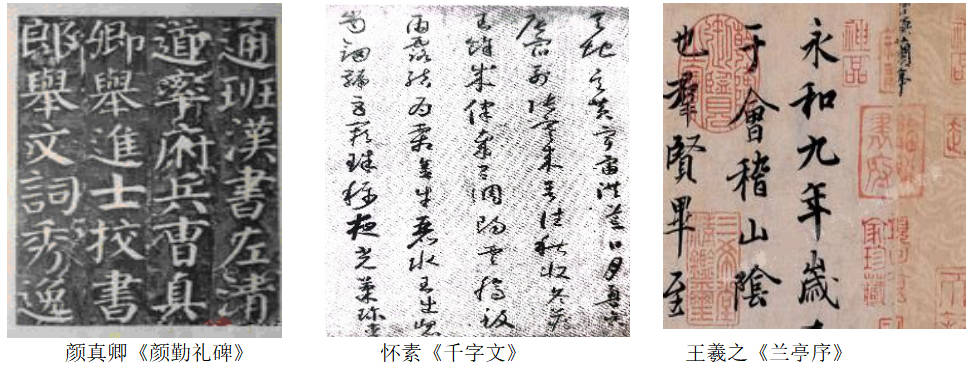 通班漢書左清
道率府兵曹真
卿舉進士校書
郎舉文詞秀逸
天地玄黃宇宙洪荒日月盈昃
辰宿列張寒來暑往秋收冬藏
成律呂調陽雲騰致
雨露結為霜金生麗水玉出崑
崗劍號巨闕珠稱夜光菓珍李
永和九年歲
于會稽山陰
也羣賢畢至
颜真卿《颜勤礼碑》
怀素《千字文》
王羲之《兰亭序》